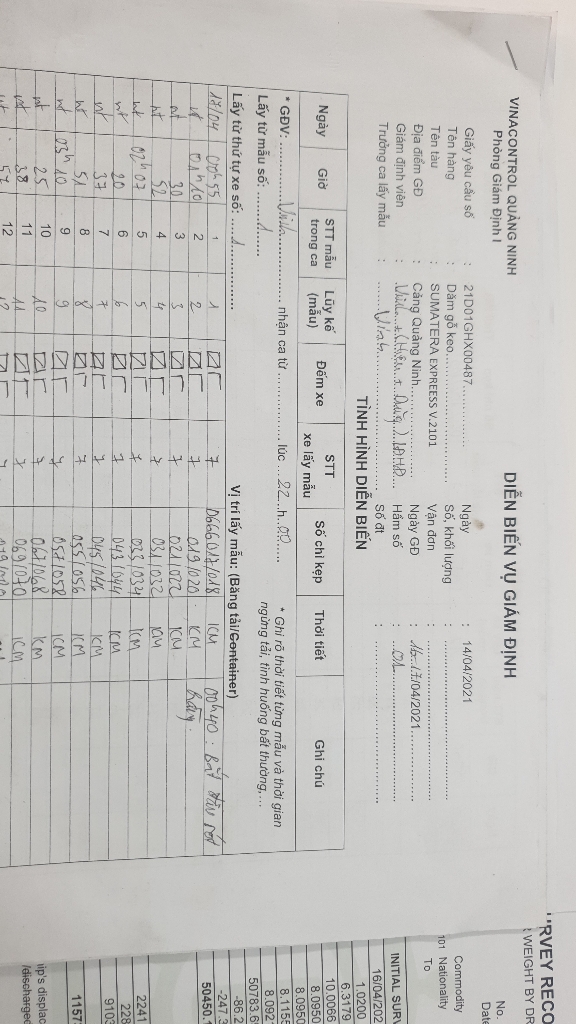 VINACONTROL QUẢNG NINH
Phòng Giám Định I
DIỄN BIẾN VỤ GIÁM ĐỊNH
Giấy yêu cầu số : 21D01GHX00487 Ngày : 14/04/2021
Tên hàng : Dăm gỗ keo Số, khối lượng :
Tên tàu : SUMATERA EXPREESS V.2101 Vận đơn :
Địa điểm GĐ : Cảng Quảng Ninh Ngày GĐ : 16-17/04/2021
Giám định viên : Hầm số : 01
Trưởng ca lấy mẫu : Số đt :
TÌNH HÌNH DIỄN BIẾN
* GĐV: nhận ca từ lúc 22 h 00
Lấy từ mẫu số: 1
Lấy từ thứ tự xe số: 1
* Ghi rõ thời tiết từng mẫu và thời gian
ngừng tải, tình huống bất thường,...
Vị trí lấy mẫu: (Băng tải/Container)
Ngày Giờ STT mẫu trong ca Lũy kế (mẫu) Đếm xe STT xe lấy mẫu Số chì kẹp Thời tiết Ghi chú
17/04 00h55 1 1 7 D666017/018 ICM 00h40: Bắt đầu rót
nt 01h10 2 2 7 019/020 ICM hàng
nt 30 3 3 7 021/022 ICM
nt 52 4 4 7 031/032 ICM
nt 02h07 5 5 7 033/034 ICM
nt 20 6 6 7 043/044 ICM
nt 37 7 7 7 045/046 ICM
nt 51 8 8 7 055/056 ICM
nt 03h10 9 9 7 057/058 ICM
nt 25 10 10 7 067/068 ICM
nt 38 11 11 7 069/070 ICM
nt 12 12
RVEY RECO
WEIGHT BY DR
No.
Date
Commodity
101 Nationality
To
INITIAL SURV
16/04/202
1.0200
6.3179
10.0066
8.0950
8.0950
8.1155
8.092
50783.6
-86.2
-247.3
50450.1
2241
228
9103
1157
ip's displac
/discharged